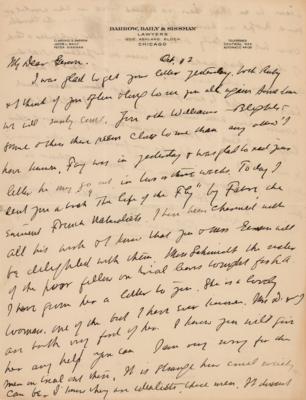 DARROW, BAILY & SISSMAN
LAWYERS
1202 ASHLAND BLOCK
CHICAGO
CLARENCE S. DARROW
PETER SISSMAN
TELEPHONES
CENTRAL 925
AUTOMATIC
My Dear Eerson. Oct. 12
I was glad to get your letter yesterday. Both Ruby
& I think of you often & long to see you all again & we
will surely come. You with Williams
& some others there seem closer to me than any other I
have known. Fay was in yesterday & was glad to read your
letter he may go out in two or three weeks. Today I
sent you a book "The Life of the Fly" by Fabre, the
eminent French Naturalist. I have been charmed with
all his work & know that you & Miss Eerson will
be delighted with them. Miss Schmidt the sister
of the poor fellow on trial leaves tonight for L A
I have given her a letter to you. She is a lovely
woman, one of the best I have ever known. Mrs D. & I
are both very fond of her. I know you will give
her any help you can I am very sorry for the
men on trial out there. It is strange how cruel society
can be. I know they are idealists these men. It doesnt